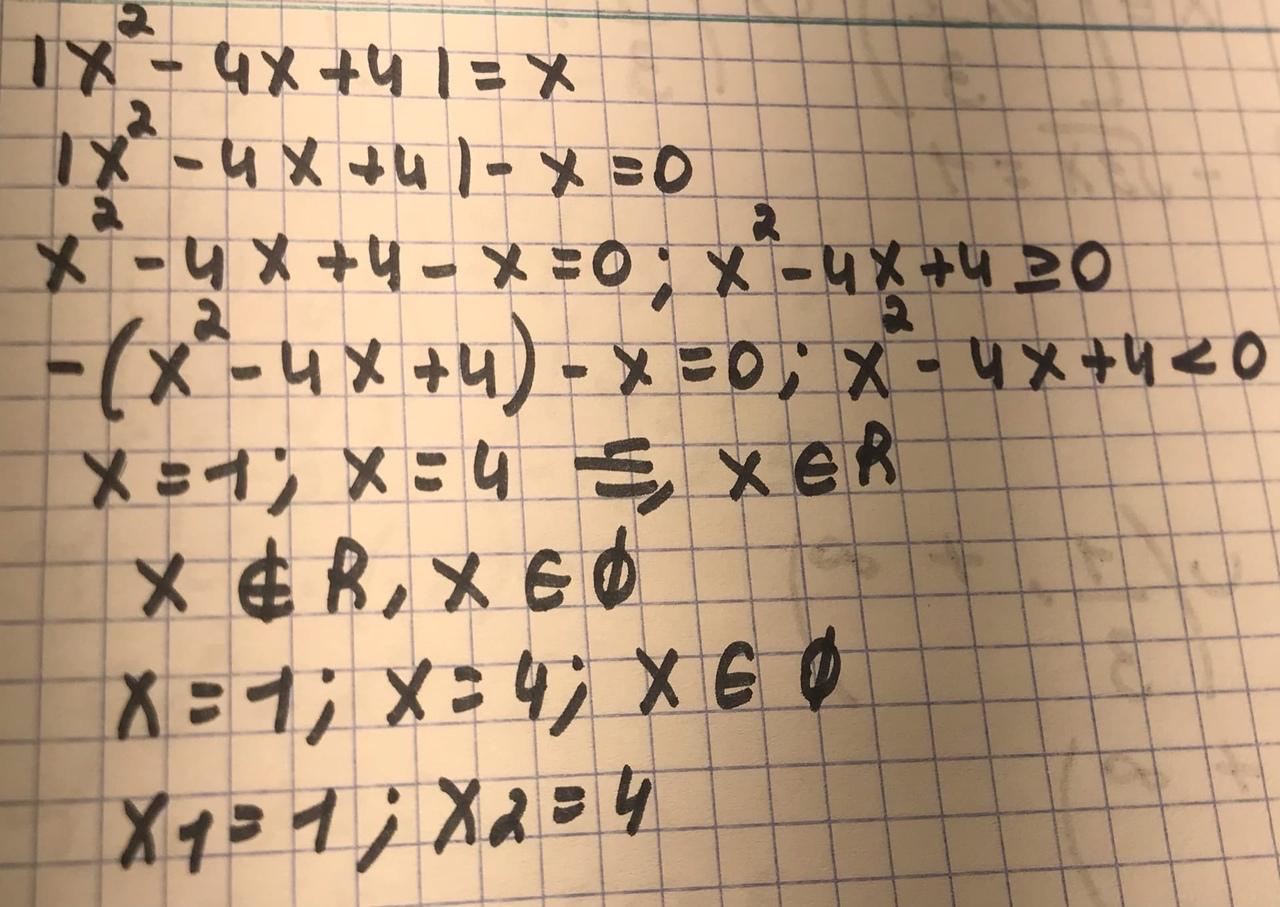 |x² - 4x + 4| = x
|x² - 4x + 4| - x = 0
x² - 4x + 4 - x = 0; x² - 4x + 4 ≥ 0
-(x² - 4x + 4) - x = 0; x² - 4x + 4 < 0
x = 1; x = 4 , x ∈ R
x ∉ R, x ∈ ∅
x = 1; x = 4; x ∈ ∅
x1 = 1; x2 = 4